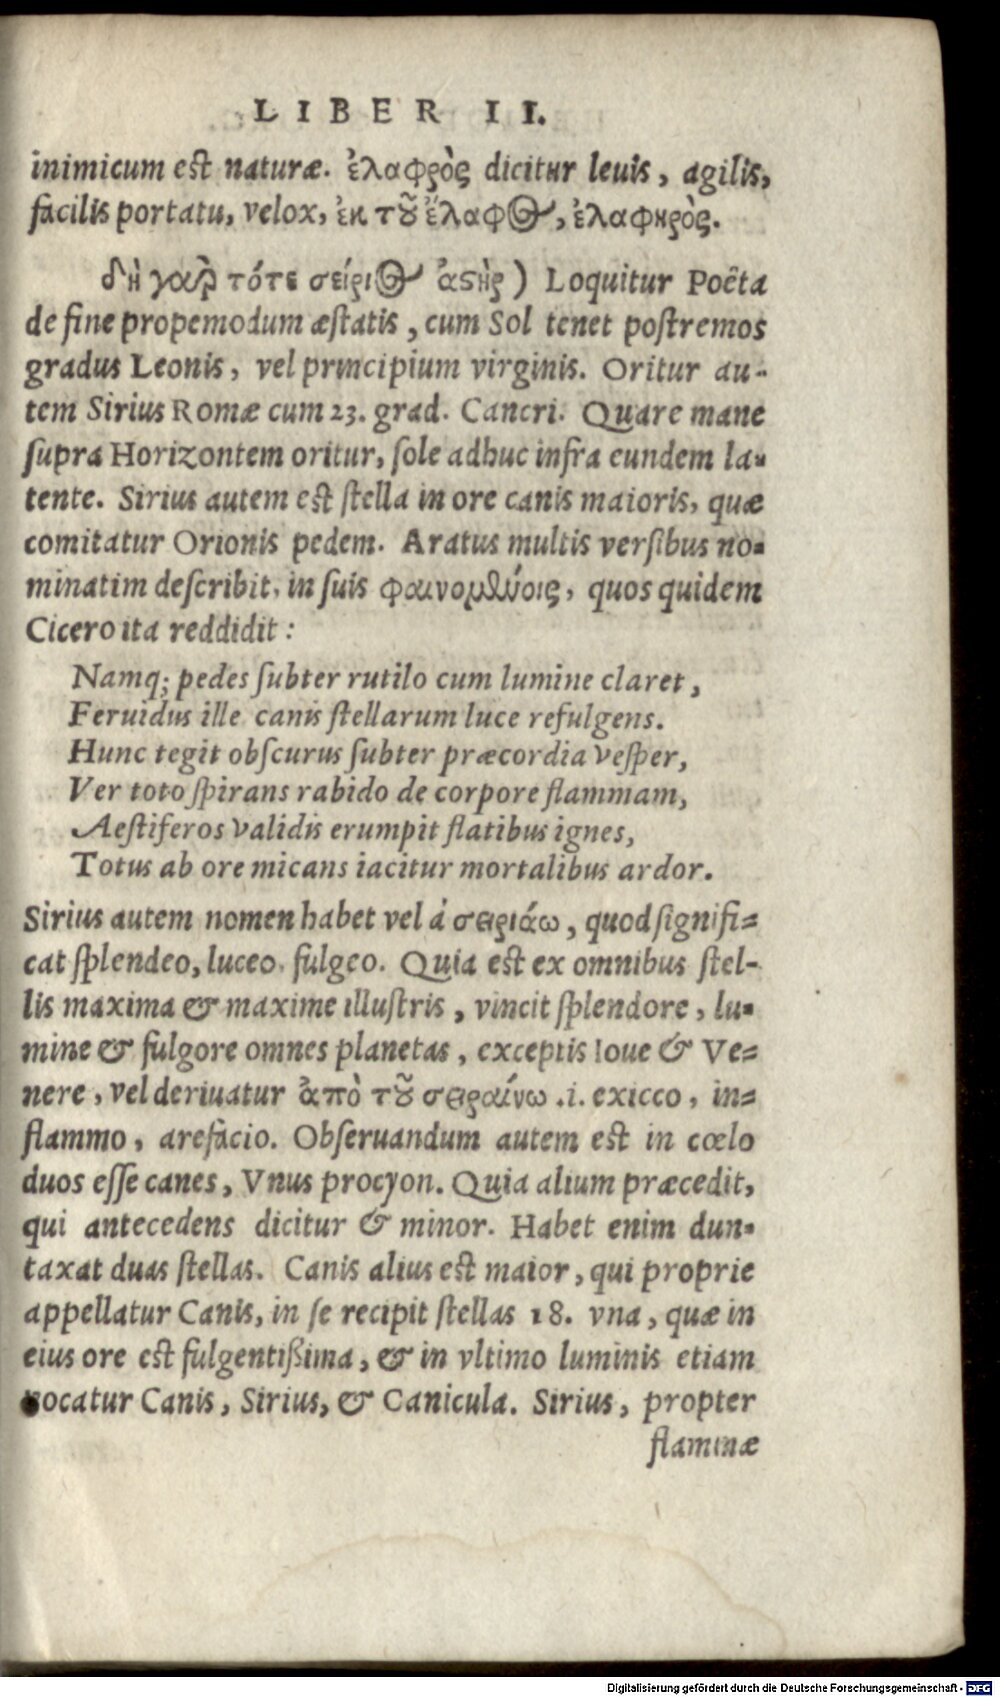 LIBER II.
inimicum est naturæ. ἐλαφρὸς dicitur leuis, agilis,
facilis portatu, velox, ἐκ τοῦ ἔλαφος, ἐλαφηρὸς.
δὴ γὰρ τότε σείριος ἀστὴρ) Loquitur Poëta
de fine propemodum æstatis, cum Sol tenet postremos
gradus Leonis, vel principium virginis. Oritur au-
tem Sirius Romæ cum 23. grad. Cancri. Quare mane
supra Horizontem oritur, sole adhuc infra eundem la-
tente. Sirius autem est stella in ore canis maioris, quæ
comitatur Orionis pedem. Aratus multis versibus no-
minatim describit, in suis φαινομένοις, quos quidem
Cicero ita reddidit:
Namq; pedes subter rutilo cum lumine claret,
Feruidus ille canis stellarum luce refulgens.
Hunc tegit obscurus subter præcordia Vesper,
Ver toto spirans rabido de corpore flammam,
Aestiferos validis erumpit flatibus ignes,
Totus ab ore micans iacitur mortalibus ardor.
Sirius autem nomen habet vel á σειριάω, quod signifi-
cat splendeo, luceo, fulgeo. Quia est ex omnibus stel-
lis maxima & maxime illustris, vincit splendore, lu-
mine & fulgore omnes planetas, exceptis Ioue & Ve-
nere, vel deriuatur ἀπὸ τοῦ σειραίνω .i. exicco, in-
flammo, arefacio. Obseruandum autem est in cœlo
duos esse canes, Vnus procyon. Quia alium præcedit,
qui antecedens dicitur & minor. Habet enim dun-
taxat duas stellas. Canis alius est maior, qui proprie
appellatur Canis, in se recipit stellas 18. vna, quæ in
eius ore est fulgentißima, & in vltimo luminis etiam
vocatur Canis, Sirius, & Canicula. Sirius, propter
flammæ
Digitalisierung gefördert durch die Deutsche Forschungsgemeinschaft - DFG